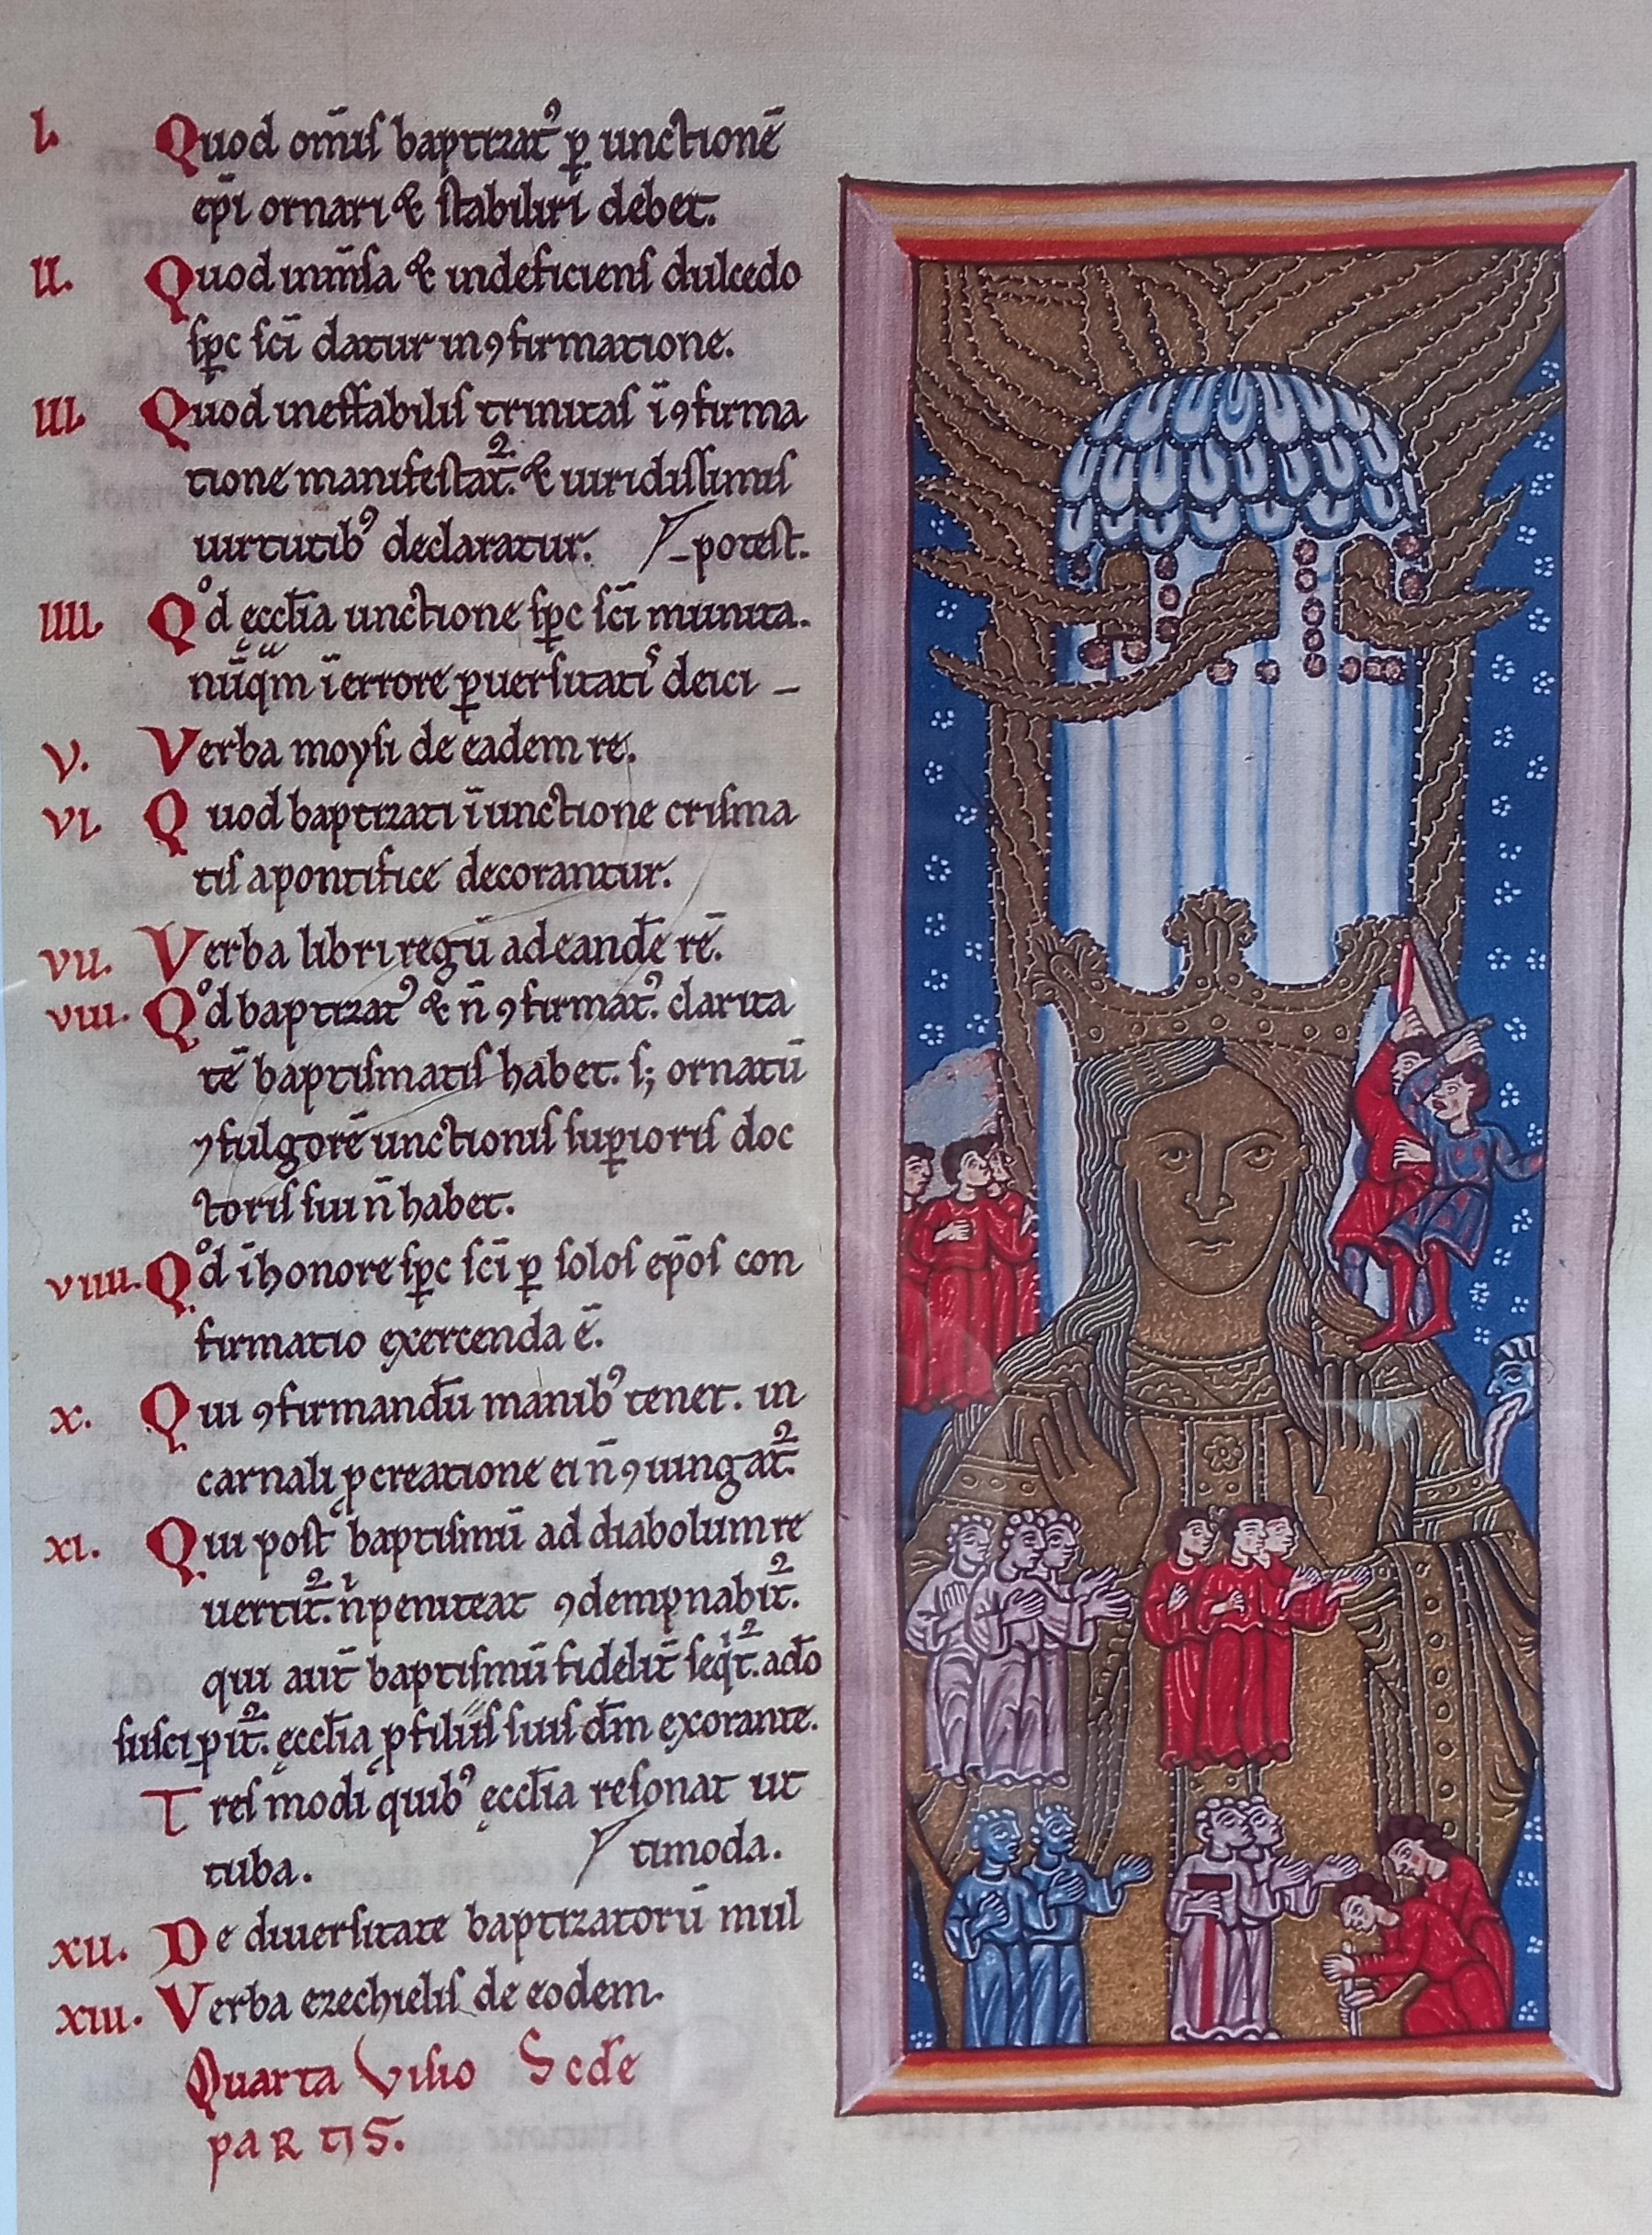 I. Quod om̄is baptizatꝰ ꝑ unctionē
ep̄i ornari & stabiliri debet.
II. Quod inm̄sa & indeficiens dulcedo
sp̄c sc̄i datur in ꝯfirmatione.
III. Quod ineffabilis trinitas ī ꝯfirma
tione manifestat᷑. & uiridissimis
uirtutibꝰ declaratur. potest.
IIII. Qͦd ęccl̄ia unctione sp̄c sc̄i munita.
nūqͣm ī errore ꝑuersitatiˢ deici
V. Verba moysi de eadem re.
VI. Quod baptizati ī unctione crisma
tis a pontifice decorantur.
VII. Verba libri regū ad eandē rē.
VIII. Qͦd baptizatꝰ & n̄ ꝯfirmatꝰ. clarita
tē baptismatis habet. s; ornatū
⁊ fulgorē unctionis suꝑioris doc
toris sui n̄ habet.
VIIII. Qͦd ī honore sp̄c sc̄i ꝑ solos ep̄os con
firmatio exercenda ē.
X. Qui ꝯfirmandū manibꝰ tenet. in
carnali ꝓcreatione ei n̄ ꝯiungat᷑.
XI. Qui post baptismū ad diabolum re
uertit᷑. n̄ peniteat ꝯdempnabit᷑.
qui aut̄ baptismū fidelit̄ seqͥt᷑. a dō
suscipit᷑. ęccl̄ia ꝓ filiis suis dm̄ exorante.
Tres modi quibꝰ ęccl̄ia resonat ut
tuba. timoda.
XII. De diuersitate baptizatorū mul
XIII. Verba ezechielis de eodem.
Quarta Visio Scd̄e
partis.